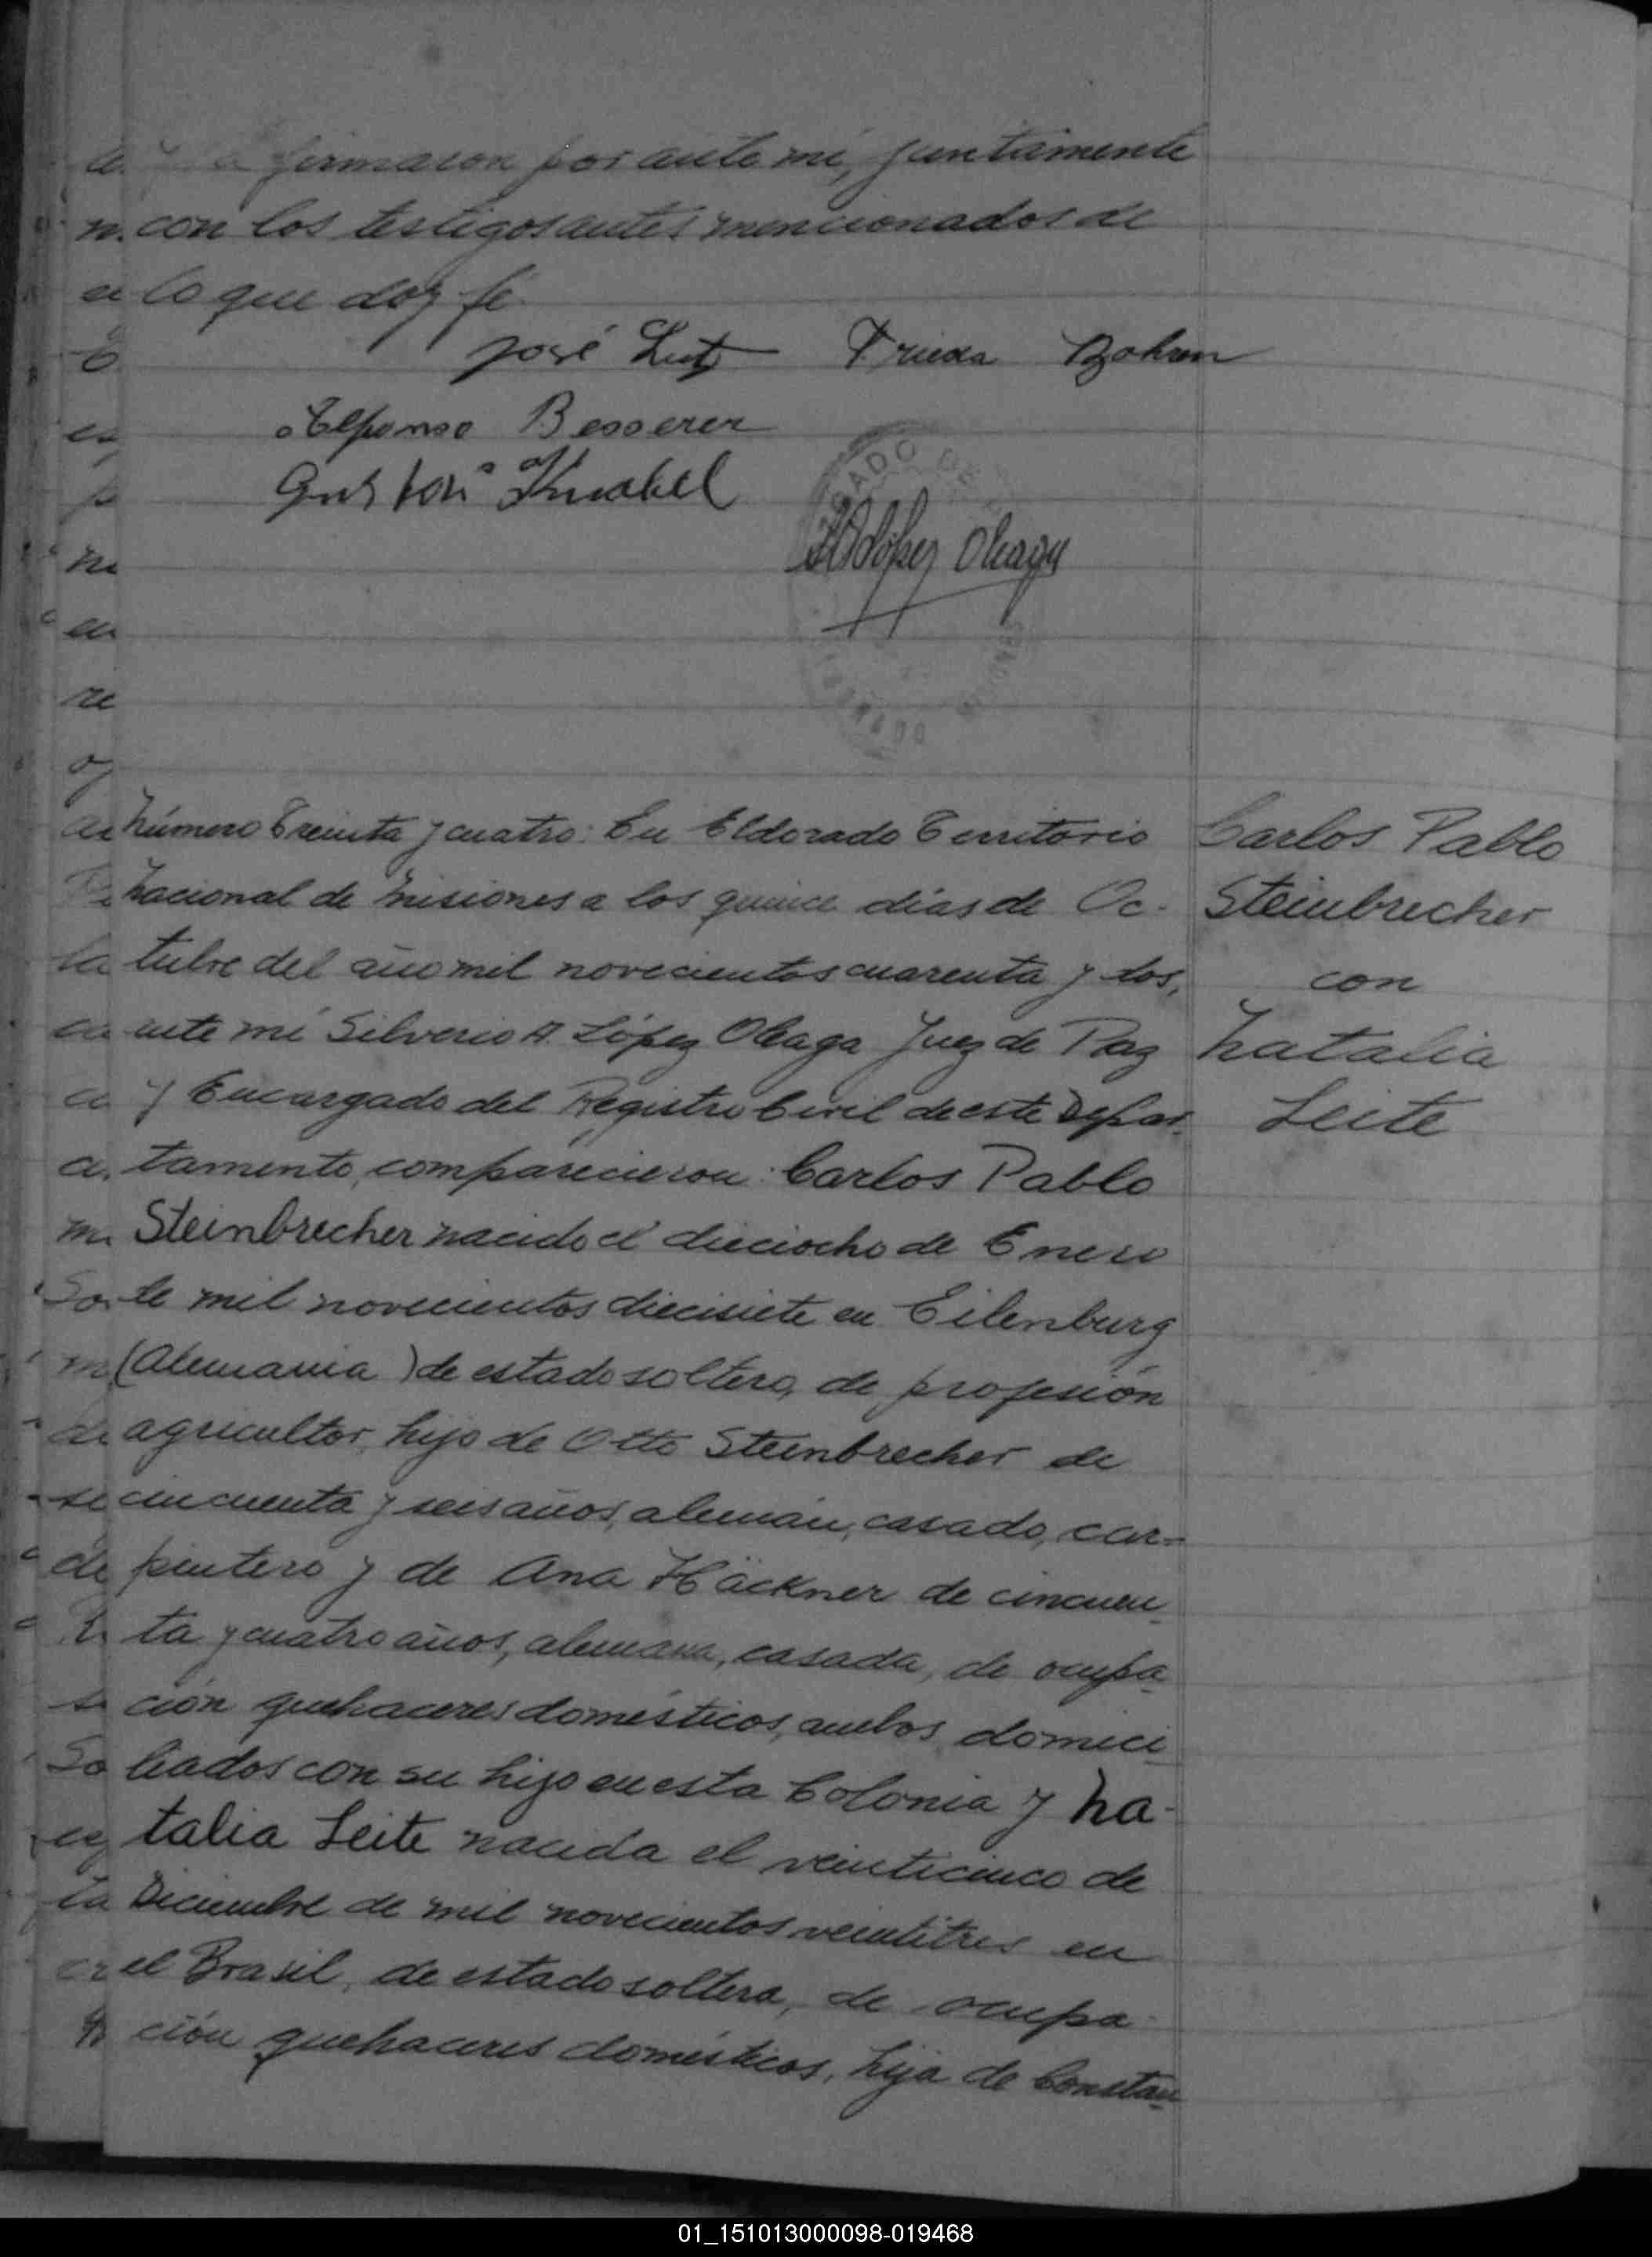 firmaron por ante mí, juntamente
con los testigos antes mencionados de
lo que doy fé.
José Lutz Frieda Bohren
Alfonso Besserer
Gustav Knabel
López Oleaga
Número Treinta y cuatro: En Eldorado Territorio
Nacional de Misiones a los quince días de Oc-
tubre del año mil novecientos cuarenta y dos,
ante mí Silverio A. López Oleaga Juez de Paz
y Encargado del Registro Civil de este Depar-
tamento, comparecieron: Carlos Pablo
Steinbrecher nacido el dieciocho de Enero
de mil novecientos diecisiete en Eilenburg
(Alemania) de estado soltero, de profesión
agricultor, hijo de Otto Steinbrecher de
cincuenta y seis años, alemán, casado, car-
pintero y de Ana Häckner de cincuen-
ta y cuatro años, alemana, casada, de ocupa-
ción quehaceres domésticos, ambos domici-
liados con su hijo en esta Colonia y Na-
talia Leite nacida el veinticinco de
Diciembre de mil novecientos veintitres en
el Brasil, de estado soltera, de ocupa-
ción quehaceres domésticos, hija de Constan-
Carlos Pablo
Steinbrecher
con
Natalia
Leite
01_151013000098-019468